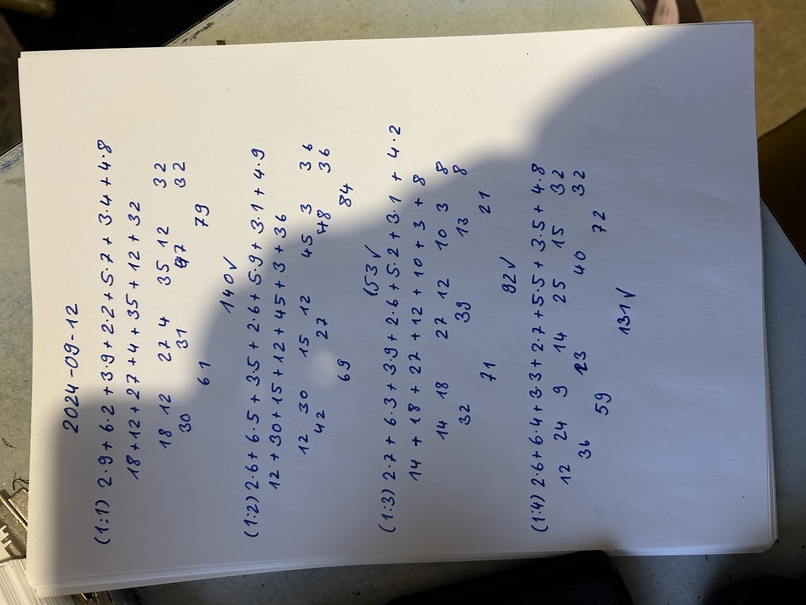 2024-09-12
(1:1) 2·9+6·2+3·9+2·2+5·7+3·4+4·8
18+12+27+4+35+12+32
18 12 27 4 35 12 32
30 31 47 32
61 79
140√
(1:2) 2·6+6·5+3·5+2·6+5·9+3·1+4·9
12+30+15+12+45+3+36
12 30 15 12 45 3 36
42 27 48 36
69 84
153√
(1:3) 2·7+6·3+3·9+2·6+5·2+3·1+4·2
14+18+27+12+10+3+8
14 18 27 12 10 3 8
32 39 13 8
71 21
92√
(1:4) 2·6+6·4+3·3+2·7+5·5+3·5+4·8
12 24 9 14 25 15 32
36 23 40 32
59 72
131√